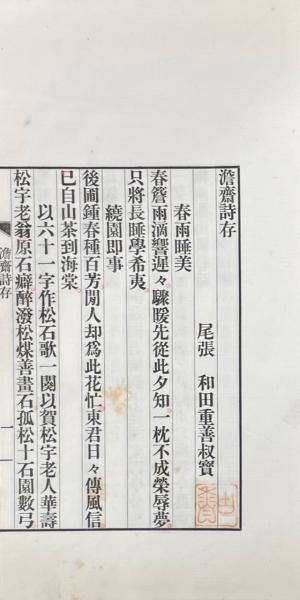 澹齋詩存
尾張 和田重善叔寶
春雨睡美
春簷雨滴響遲々驟暖先從此夕知一枕不成榮辱夢
只將長睡學希夷
繞園即事
後圃鍾春種百芳閒人却為此花忙東君日々傳風信
已自山茶到海棠
以六十一字作松石歌一闋以賀松宇老人華壽
松宇老翁原石癖醉潑松煤善畫石孤松十石園數弓
澹齋詩存
一